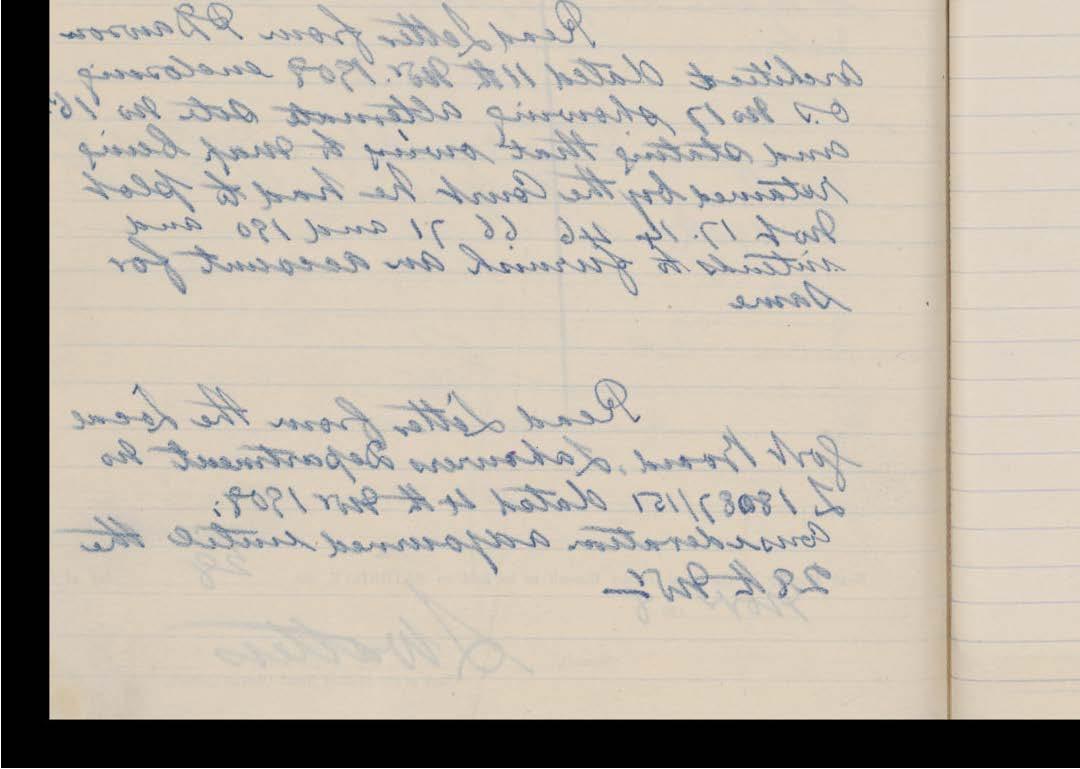 Read Letter from P Dawson
Architect dated 11th Novr. 1908 enclosing
O.S No 17 showing alternate site No 16
and stating that owing to map being
retained by the Court he had to plot
Nos 17. 14 46 66 71 and 180 and
intends to furnish an account for
Same
Read Letter from the Local
Govt Board, Labourers Department No
L 18087/151 dated 4th Novr 1908.
Consideration adjourned until the
28th Novr
28